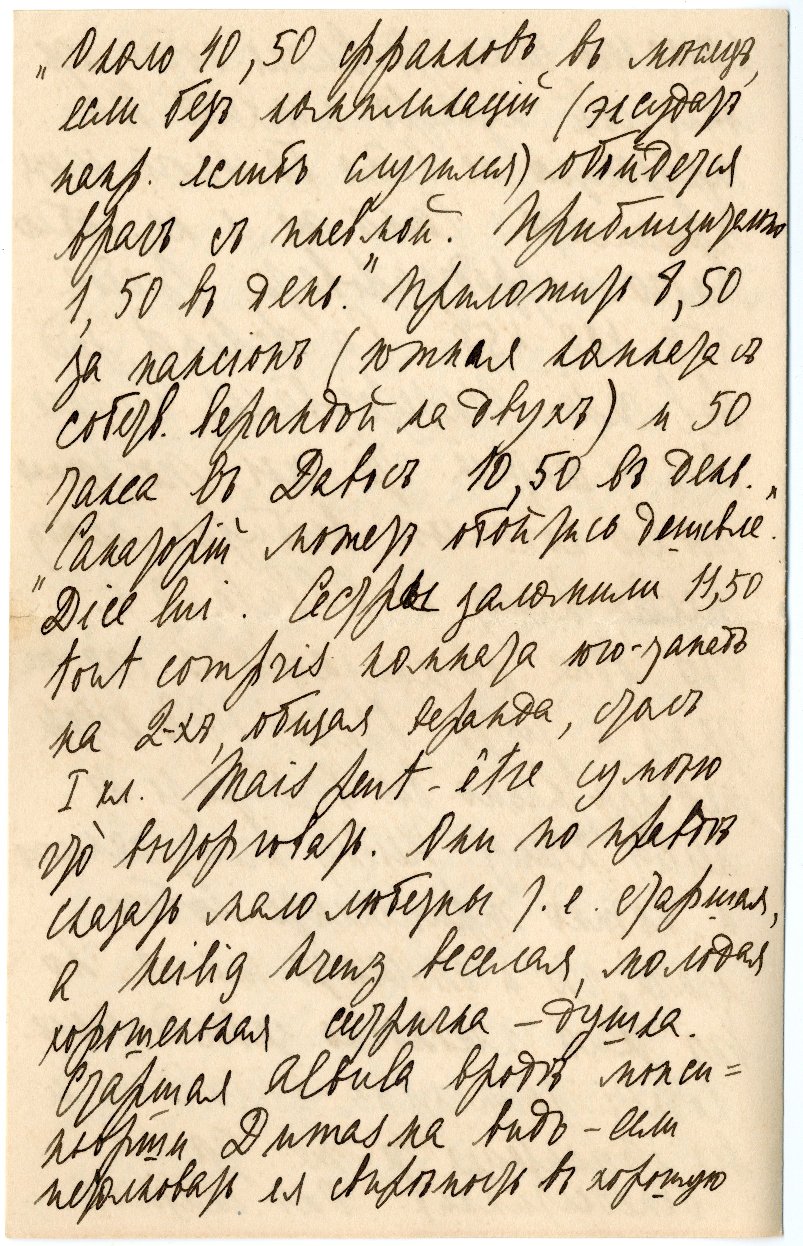 „Около 40, 50 франковъ въ мѣсяцъ,
если безъ компликацій (эксудатъ
напр. еслибъ случился) обойдется
врачъ съ пневмой. Приблизительно
1,50 въ день." Приложить 8,50
за пансіонъ (южная комната съ
собств. верандой на двухъ) и 50
такса въ Давосъ 10,50 въ день.
Санаторій можетъ обойтись дешевле".
„Dice lui. Сестры заломили 11,50
tout compris комната юго-западъ
на 2-хъ, общая веранда, столъ
I кл. Mais peut-être сумѣю
что выторговать. Они по правдѣ
сказать мало любезны т. е. старшая,
а heilig Kreuz веселая, молодая
хорошенькая сестричка – душка.
Старшая Albula вродѣ монси=
ньорши Dumas на видъ – если
перековать ея свирѣпость въ хорошую